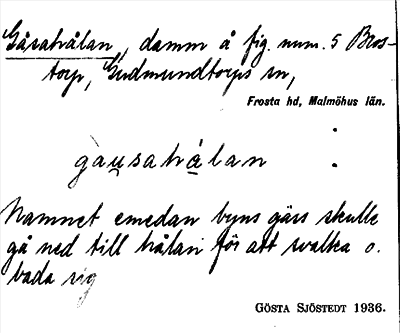 Gåsahålan, damm å fig. num. 5 Bros-
torp, Gudmundtorps sn,
Frosta hd, Malmöhus län.
gau̲sahå̲lan
Namnet emedan byns gäss skulle
gå ned till hålan för att svalka o.
bada sig
GÖSTA SJÖSTEDT 1936.